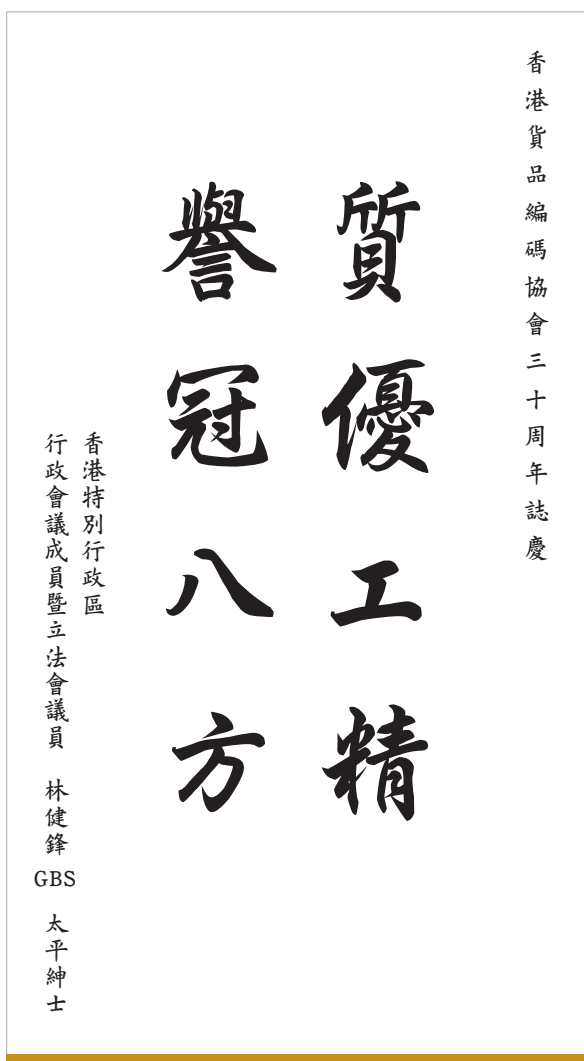 香港貨品編碼協會三十周年誌慶
質優工精
譽冠八方
香港特別行政區
行政會議成員暨立法會議員 林健鋒 GBS 太平紳士